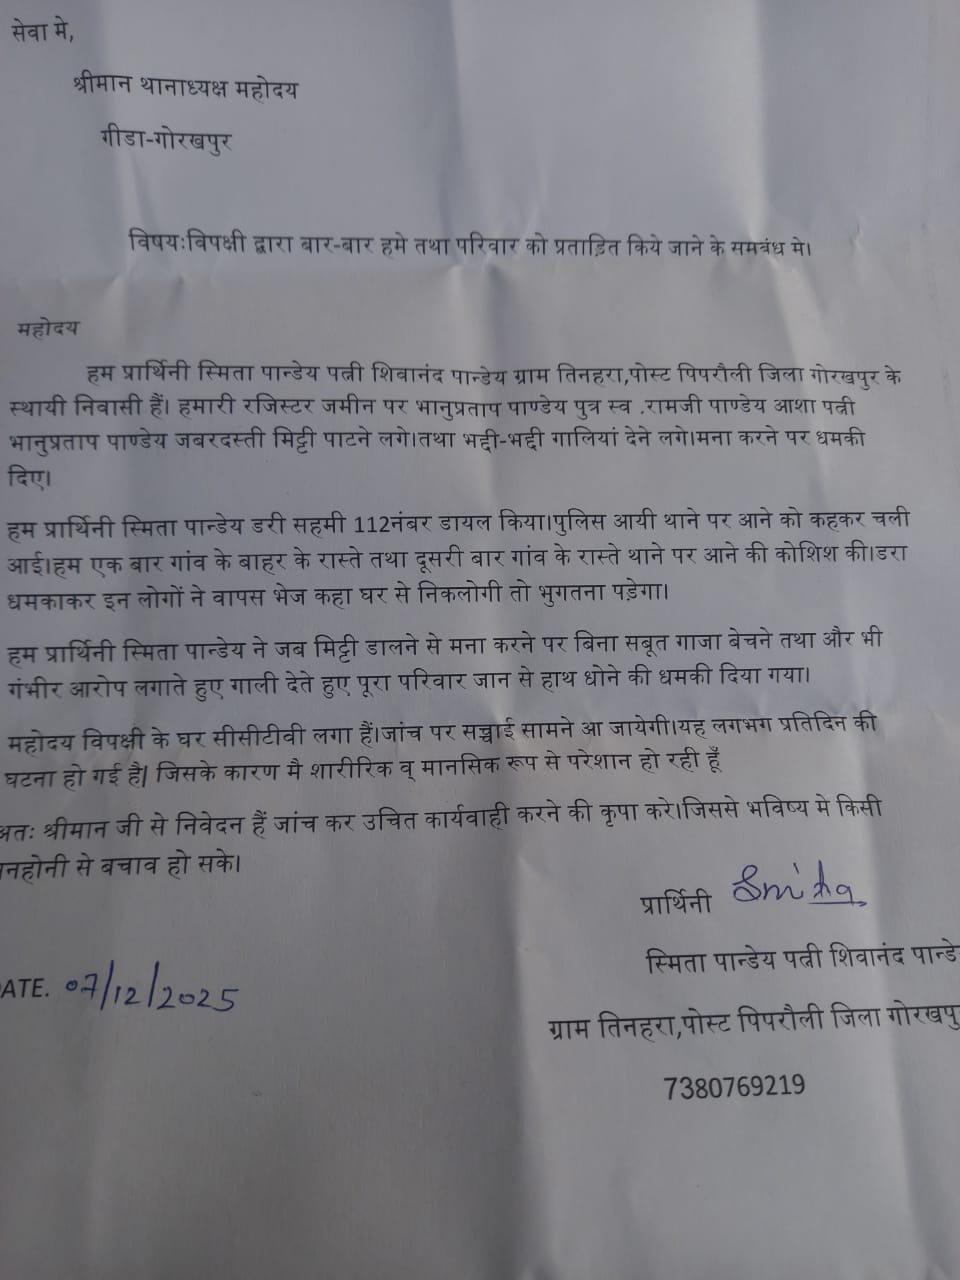 सेवा मे,
श्रीमान थानाध्यक्ष महोदय
गीडा-गोरखपुर
विषय:विपक्षी द्वारा बार-बार हमे तथा परिवार को प्रताड़ित किये जाने के समबंध मे।
महोदय
हम प्रार्थिनी स्मिता पान्डेय पत्नी शिवानंद पान्डेय ग्राम तिनहरा,पोस्ट पिपरौली जिला गोरखपुर के
स्थायी निवासी हैं। हमारी रजिस्टर जमीन पर भानुप्रताप पाण्डेय पुत्र स्व .रामजी पाण्डेय आशा पत्नी
भानुप्रताप पाण्डेय जबरदस्ती मिट्टी पाटने लगे।तथा भद्दी-भद्दी गालियां देने लगे।मना करने पर धमकी
दिए।
हम प्रार्थिनी स्मिता पान्डेय डरी सहमी 112नंबर डायल किया।पुलिस आयी थाने पर आने को कहकर चली
आई।हम एक बार गांव के बाहर के रास्ते तथा दूसरी बार गांव के रास्ते थाने पर आने की कोशिश की।डरा
धमकाकर इन लोगों ने वापस भेज कहा घर से निकलोगी तो भुगतना पड़ेगा।
हम प्रार्थिनी स्मिता पान्डेय ने जब मिट्टी डालने से मना करने पर बिना सबूत गाजा बेचने तथा और भी
गंभीर आरोप लगाते हुए गाली देते हुए पूरा परिवार जान से हाथ धोने की धमकी दिया गया।
महोदय विपक्षी के घर सीसीटीवी लगा हैं।जांच पर सच्चाई सामने आ जायेगी।यह लगभग प्रतिदिन की
घटना हो गई है| जिसके कारण मै शारीरिक व् मानसिक रूप से परेशान हो रही हूँ
अतः श्रीमान जी से निवेदन हैं जांच कर उचित कार्यवाही करने की कृपा करे।जिससे भविष्य मे किसी
नहोनी से बचाव हो सके।
प्रार्थिनी Smita
स्मिता पान्डेय पत्नी शिवानंद पान्डे
ATE. 07/12/2025
ग्राम तिनहरा,पोस्ट पिपरौली जिला गोरखपु
7380769219